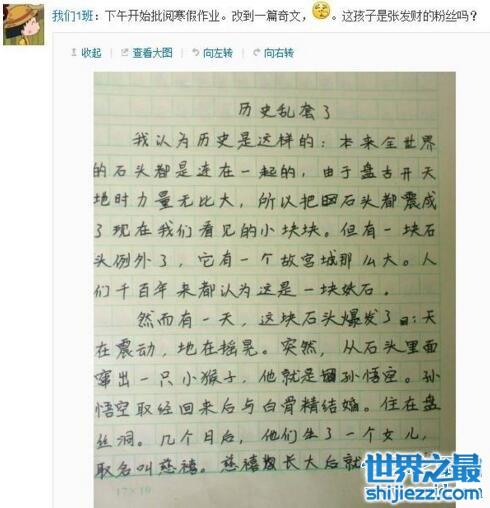 我们1班：下午开始批阅寒假作业。改到一篇奇文，。这孩子是张发财的粉丝吗？
收起 查看大图 向左转 向右转
历史乱套了
我认为历史是这样的：本来全世界
的石头都是连在一起的，由于盘古开天
地时力量无比大，所以把石头都震成
了现在我们看见的小块块。但有一块石
头例外了，它有一个故宫城那么大。人
们千百年来都认为这是一块妖石。
然而有一天，这块石头爆发了：天
在震动，地在摇晃。突然，从石头里面
窜出一只小猴子，他就是孙悟空。孙
悟空取经回来后与白骨精结婚。住在盘
丝洞。几个月后，他们生了一个女儿，
取名叫慈禧。慈禧长大后就
17×16
世界之最
shijiezz.com